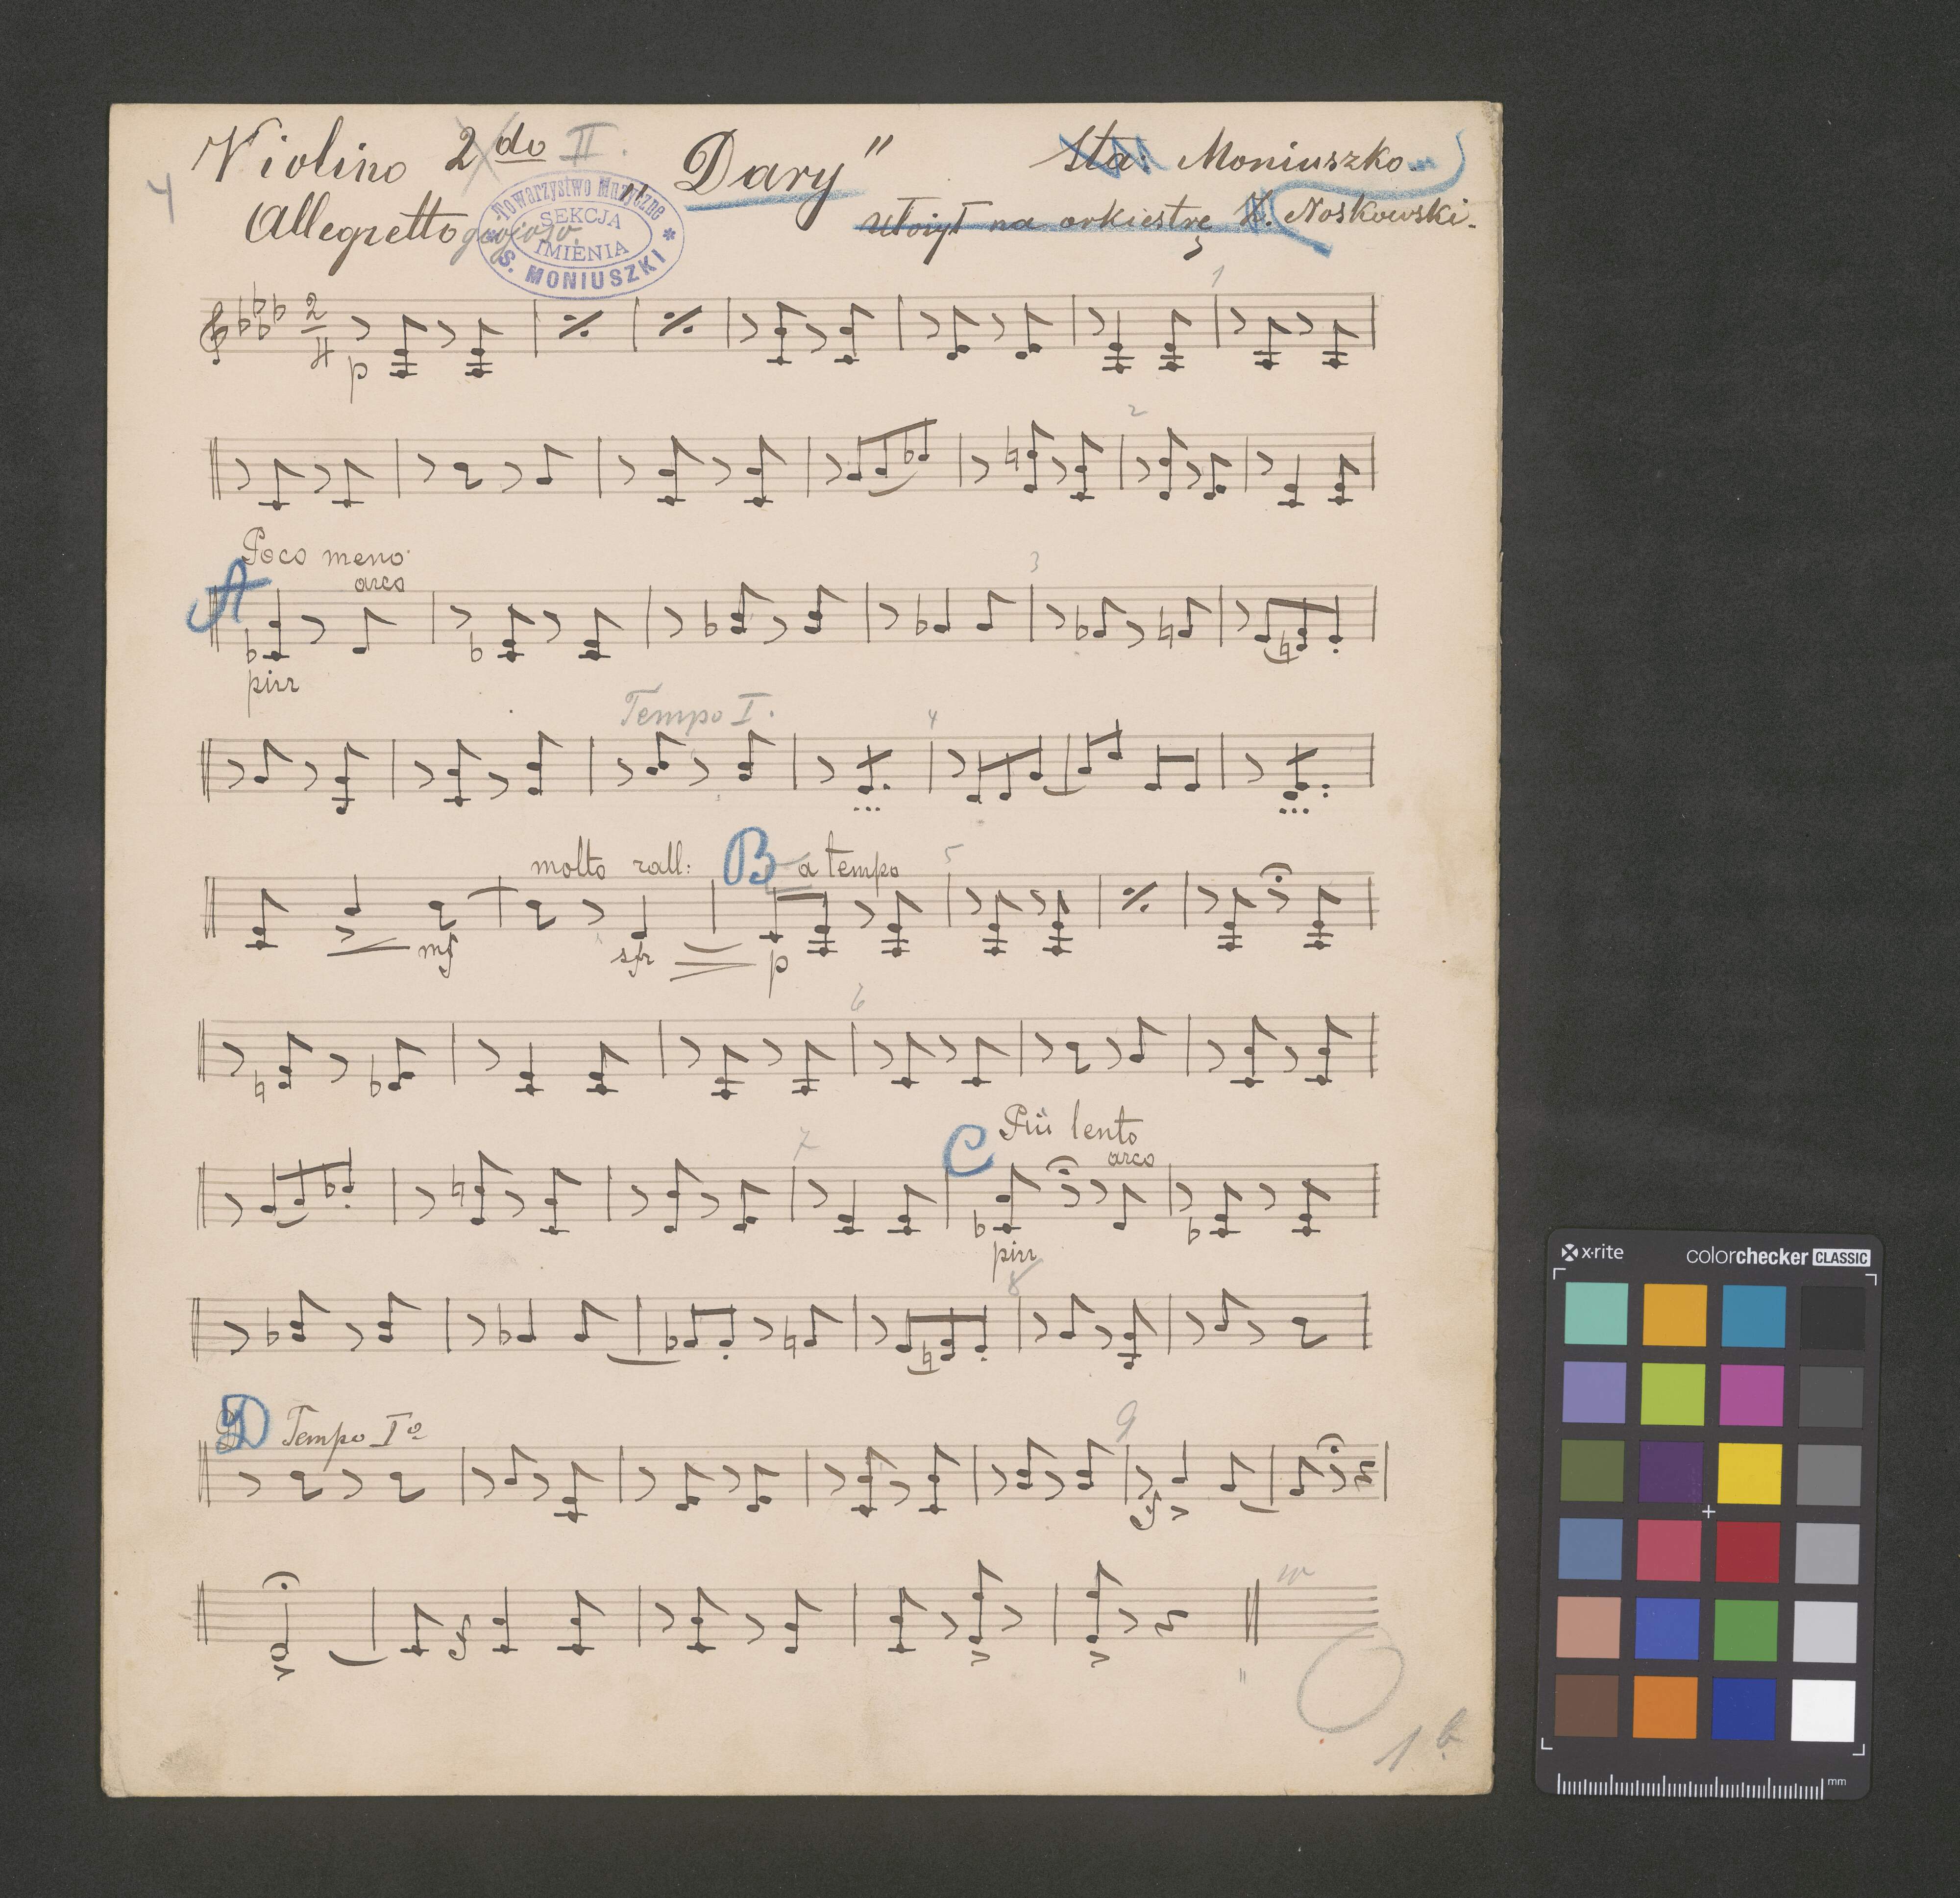 Violino 2do II. „Dary" Sta: Moniuszko
4
Allegretto giojoso. ułożył na orkiestrę Z. Noskowski.
Towarzystwo Muzyczne
SEKCJA
IMIENIA
S. MONIUSZKI
2
4
p
1
2
Poco meno
A arco
3
pizz
Tempo I.
4
molto rall: B a tempo 5
mf sfz p
6
Più lento
7 C arco
pizz
8
D Tempo Iº
9
sf
10
11
1 b
x-rite colorchecker CLASSIC
mm